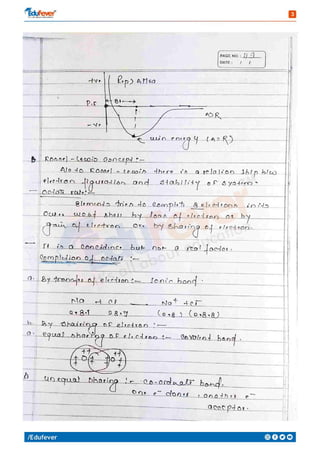 Edufever
3
PAGE NO.:
DATE: / /
+ve
Rep > Attra
P.E
B.L
→ R
-ve
min. energy (A=R)
B. Kossel-Lewis Concept:-
Al. to Kossel-Lewis there is a relation ship b/w
electron figuration and stability of system-
octate rule:-
Elements tries to complete 8 electrons in its
outer most shell by loss of electron or by
gain of electron or by sharing of electron.
It is a concidence but not a real factor.
Completion of octate :-
a. By transfer of electron:- Ionic bond.
Na + Cl Na+ + Cl-
2.8.1 2.8.7 (2.8) (2.8.8)
b. By sharing of electron :-
a. equal sharing of electron :- covalent bond.
unequal sharing :- co-ordinate bond.
One e- donor, another e-
acceptor.
/Edufever